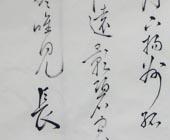 月下揚州孤
遠影碧空
唯見長